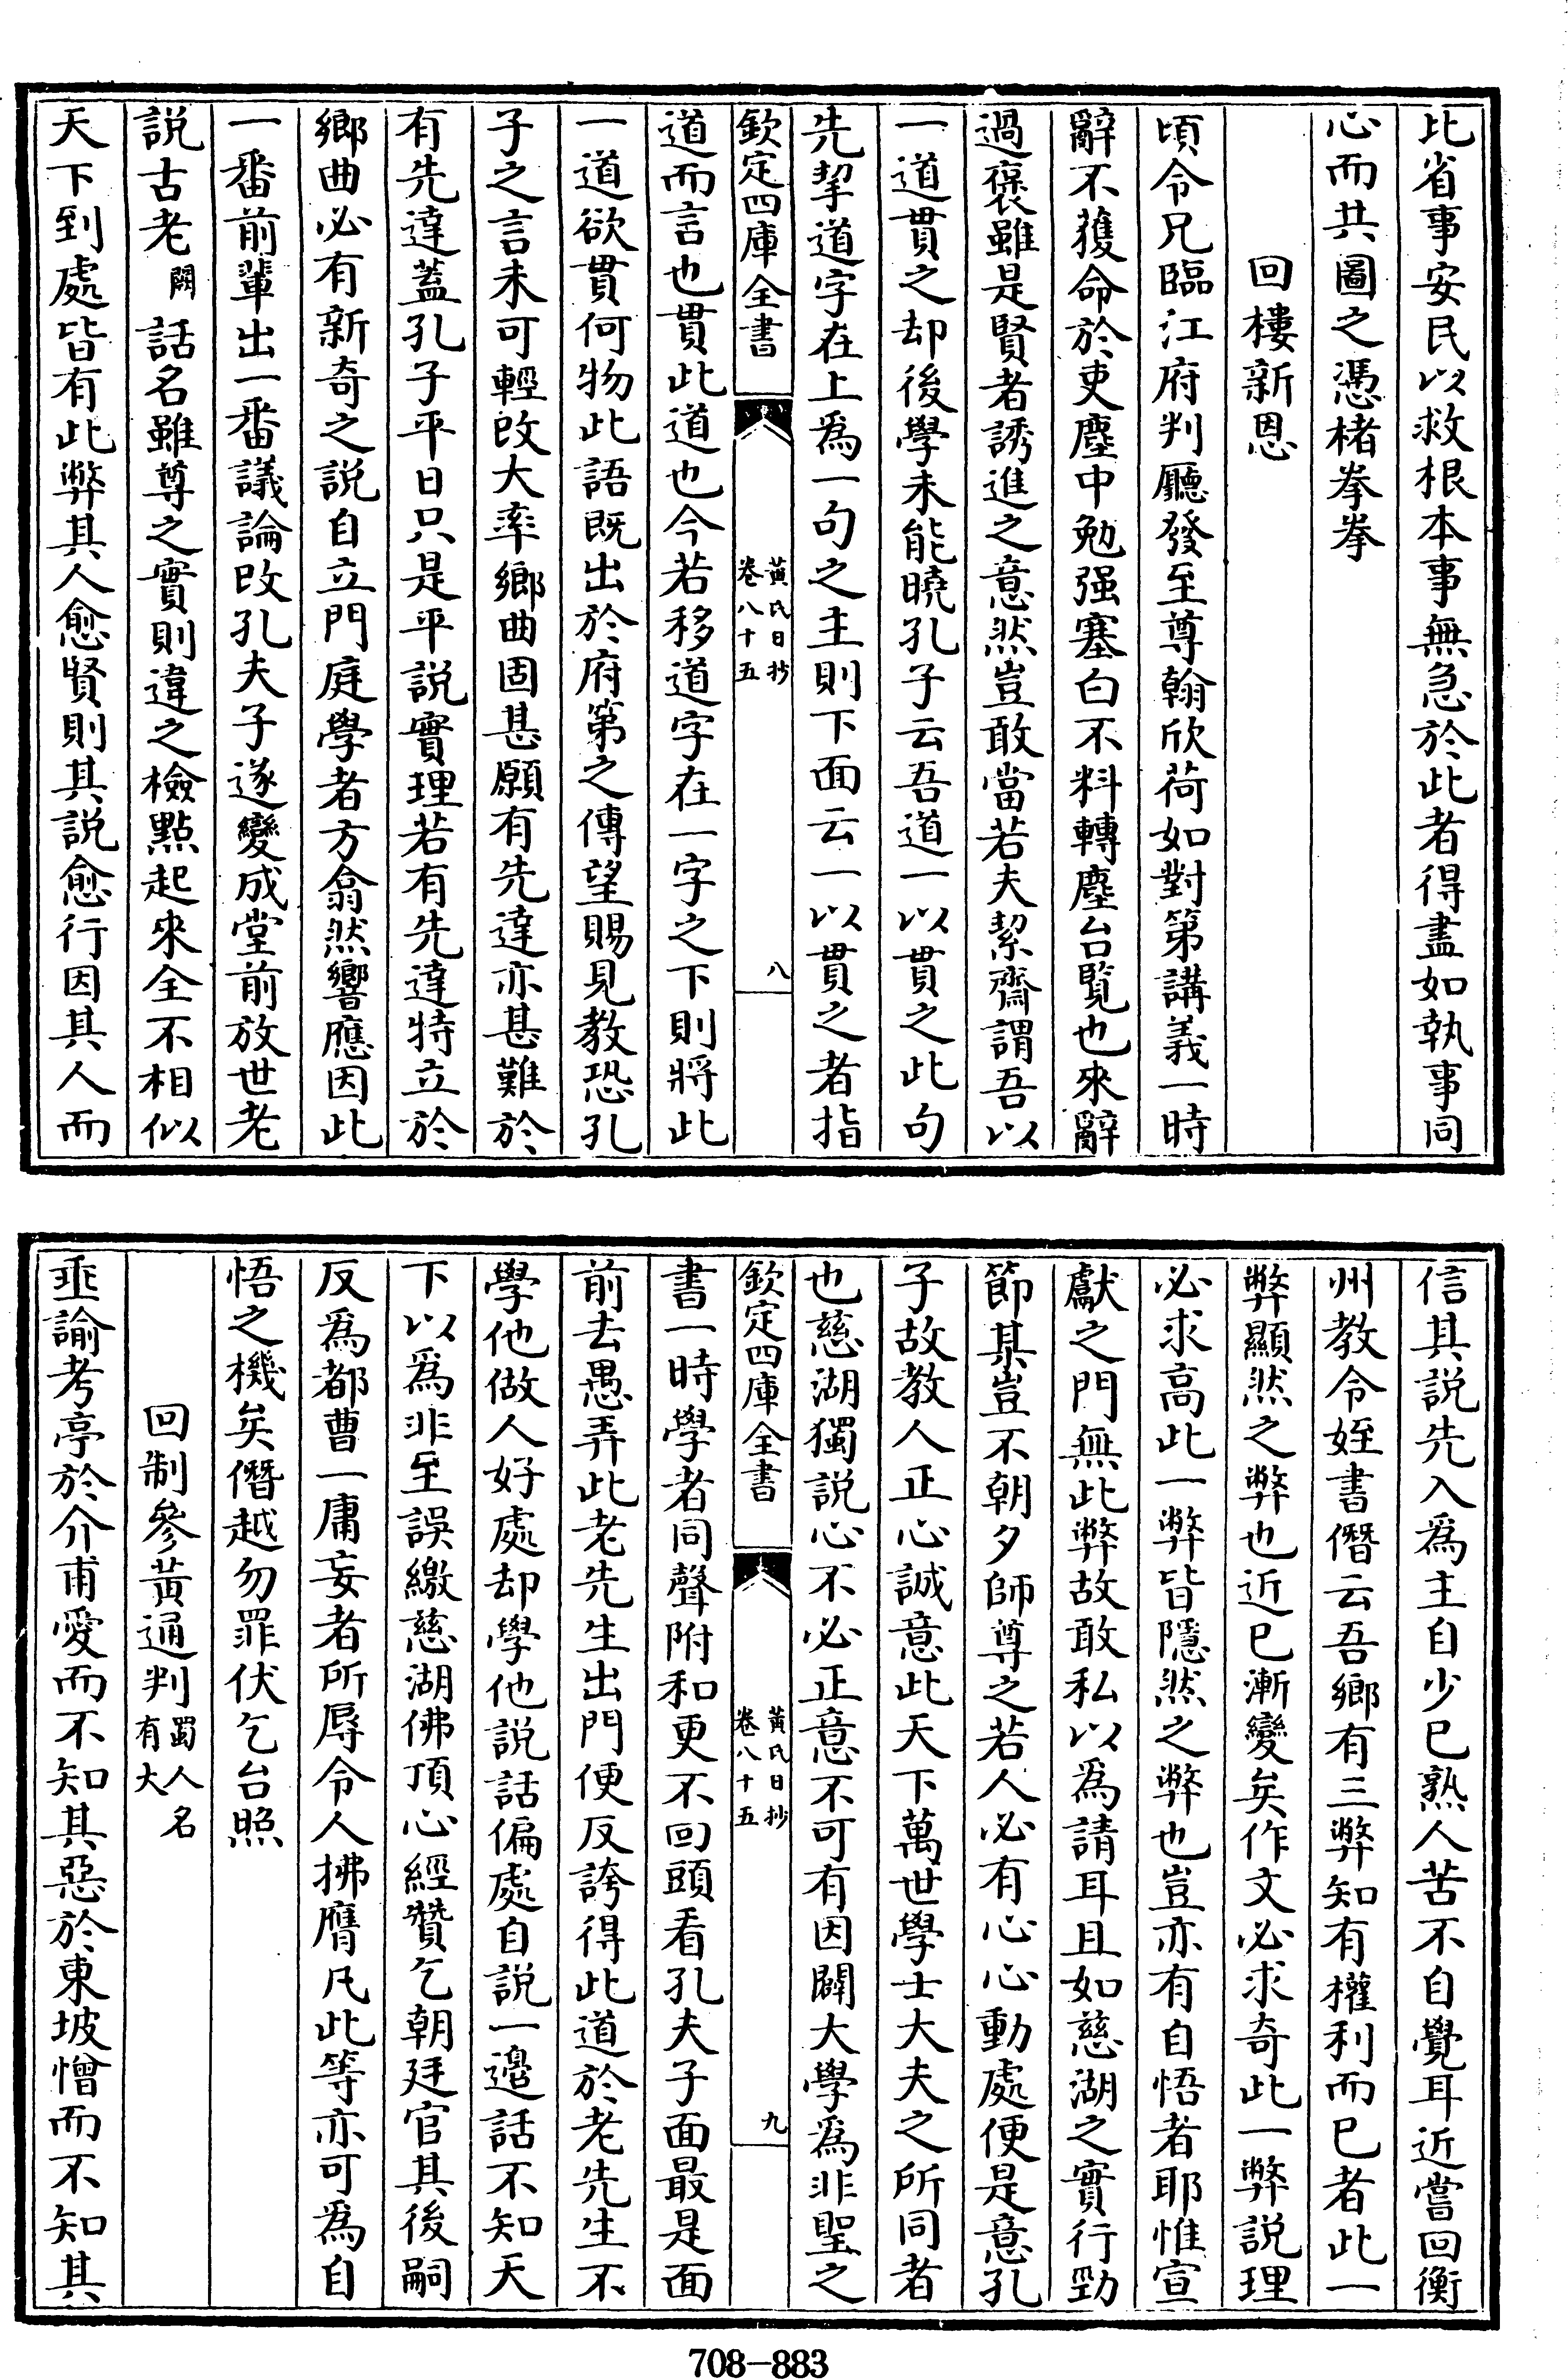 此省事安民以救根本事無急於此者得盡如執事同
心而共圖之憑楮拳拳
回樓新恩
頃令兄臨江府判廳發至尊翰欣荷如對第講義一時
辭不獲命於吏塵中勉强塞白不料轉塵台覽也來辭
過褒雖是賢者誘進之意然豈敢當若夫絜齋謂吾以
一道貫之却後學未能曉孔子云吾道一以貫之此句
先挈道字在上爲一句之主則下面云一以貫之者指
欽定四庫全書
黃氏日抄
卷八十五
八
道而言也貫此道也今若移道字在一字之下則將此
一道欲貫何物此語既出於府第之傳望賜見教恐孔
子之言未可輕改大率鄉曲固甚願有先達亦甚難於
有先達蓋孔子平日只是平說實理若有先達特立於
鄉曲必有新奇之說自立門庭學者方翕然響應因此
一番前輩出一番議論改孔夫子遂變成堂前放世老
說古老闕話名雖尊之實則違之檢點起來全不相似
天下到處皆有此弊其人愈賢則其說愈行因其人而
信其說先入爲主自少已熟人苦不自覺耳近嘗回衡
州教令姪書僭云吾鄉有三弊知有權利而已者此一
弊顯然之弊也近已漸變矣作文必求奇此一弊說理
必求高此一弊皆隱然之弊也豈亦有自悟者耶惟宣
獻之門無此弊故敢私以爲請耳且如慈湖之實行勁
節某豈不朝夕師尊之若人必有心心動處便是意孔
子故教人正心誠意此天下萬世學士大夫之所同者
也慈湖獨說心不必正意不可有因闢大學爲非聖之
欽定四庫全書
黃氏日抄
卷八十五
九
書一時學者同聲附和更不回頭看孔夫子面最是面
前去愚弄此老先生出門便反誇得此道於老先生不
學他做人好處却學他說話偏處自說一邉話不知天
下以爲非至誤繳慈湖佛頂心經贊乞朝廷官其後嗣
反爲都曹一庸妄者所辱令人拂膺凡此等亦可爲自
悟之機矣僭越勿罪伏乞台照
回制參黃通判蜀人名
有大
垂諭考亭於介甫愛而不知其惡於東坡憎而不知其
708-883